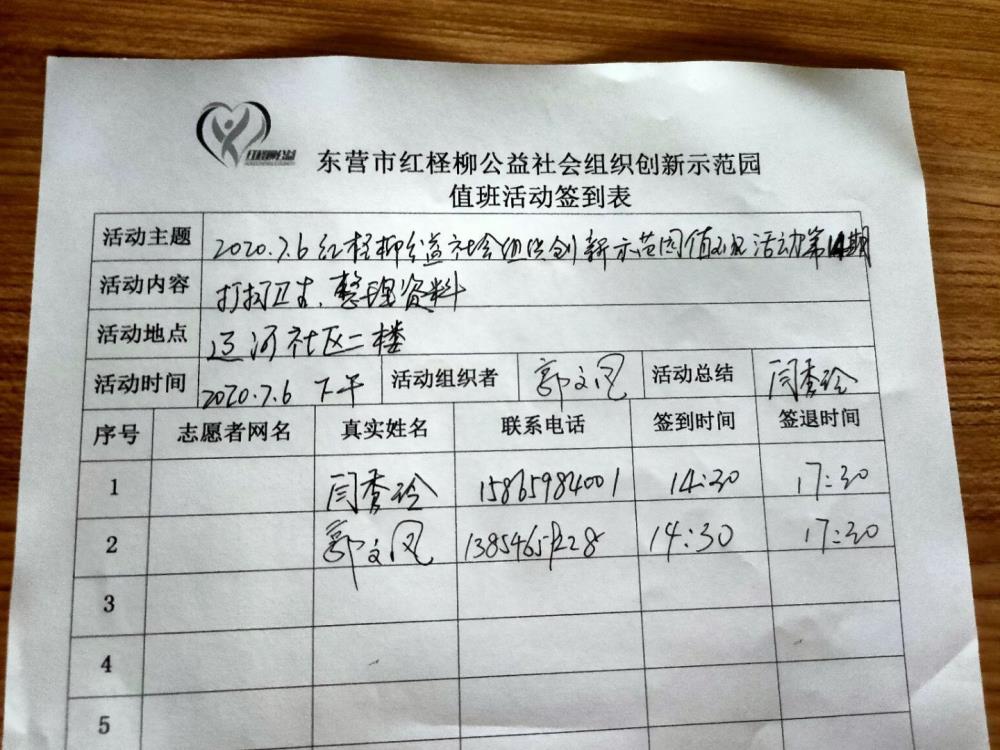 红柽柳公益
东营市红柽柳公益社会组织创新示范园
值班活动签到表
活动主题 2020.7.6红柽柳公益社会组织创新示范园值班活动第14期
活动内容 打扫卫生、整理资料
活动地点 辽河社区二楼
活动时间 2020.7.6 下午 活动组织者 郭文凤 活动总结 闫秀玲
序号 志愿者网名 真实姓名 联系电话 签到时间 签退时间
1 闫秀玲 15865984001 14:30 17:30
2 郭文凤 14:30 17:30
3
4
5